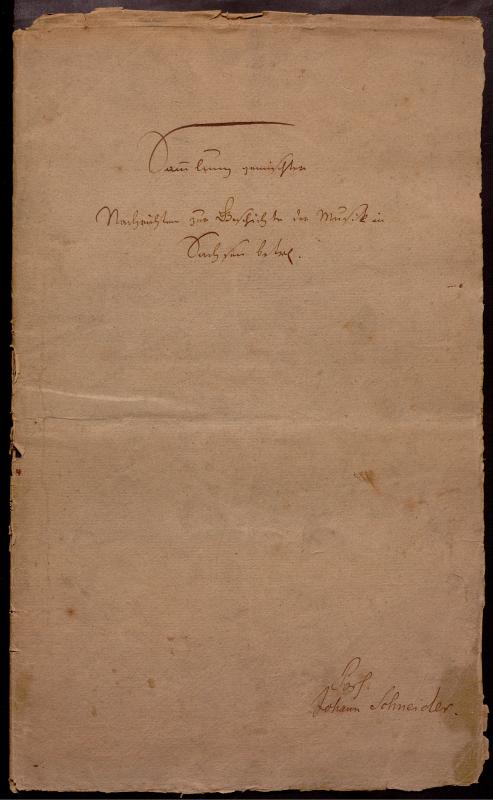 Sam̄lung gemischter
Nachrichten zur Geschichte der Musik in
Sachsen betr.
Johann Schneider.